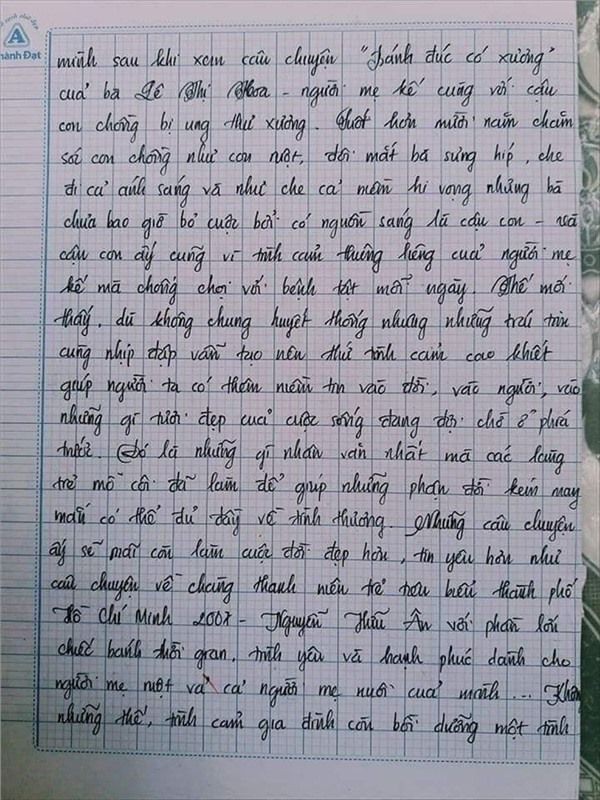 A
hành Đạt
mình sau khi xem câu chuyện "Bánh đúc có xương"
của bà Lê Thị Hoa - người mẹ kế cùng với cậu
con chồng bị ung thư xương. Suốt hơn mười năm chăm
sóc con chồng như con ruột, đôi mắt bà sưng húp, che
đi cả ánh sáng và như che cả mầm hi vọng nhưng bà
chưa bao giờ bỏ cuộc bởi có nguồn sáng là cậu con - và
cậu con ấy cũng vì tình cảm thiêng liêng của người mẹ
kế mà chống chọi với bệnh tật mỗi ngày. Thế mới
thấy, dù không chung huyết thống nhưng những trái tim
cùng nhịp đập vẫn tạo nên thứ tình cảm cao khiết
giúp người ta có thêm niềm tin vào đời, vào người, vào
những gì tươi đẹp của cuộc sống đang đợi chờ ở phía
trước. Đó là những gì nhân văn nhất mà các làng
trẻ mồ côi đã làm để giúp những phận đời kém may
mắn có thể đủ đầy về tình thương. Những câu chuyện
ấy sẽ mãi còn làm cuộc đời đẹp hơn, tin yêu hơn như
câu chuyện về chàng thanh niên trẻ tiêu biểu thành phố
Hồ Chí Minh 2007 - Nguyễn Hữu Ân với phân lối
chiếc bánh thời gian, tình yêu và hạnh phúc dành cho
người mẹ ruột và cả người mẹ nuôi của mình... Không
những thế, tình cảm gia đình còn bồi dưỡng một tình